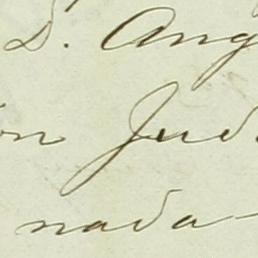 D. Ang
ón Jud
nada